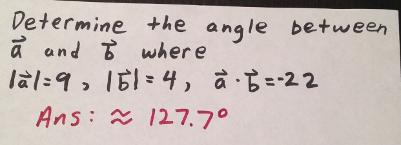 Determine the angle between
a⃗ and b⃗ where
|a⃗|=9, |b⃗|=4, a⃗·b⃗=-22
Ans: ≈ 127.7°